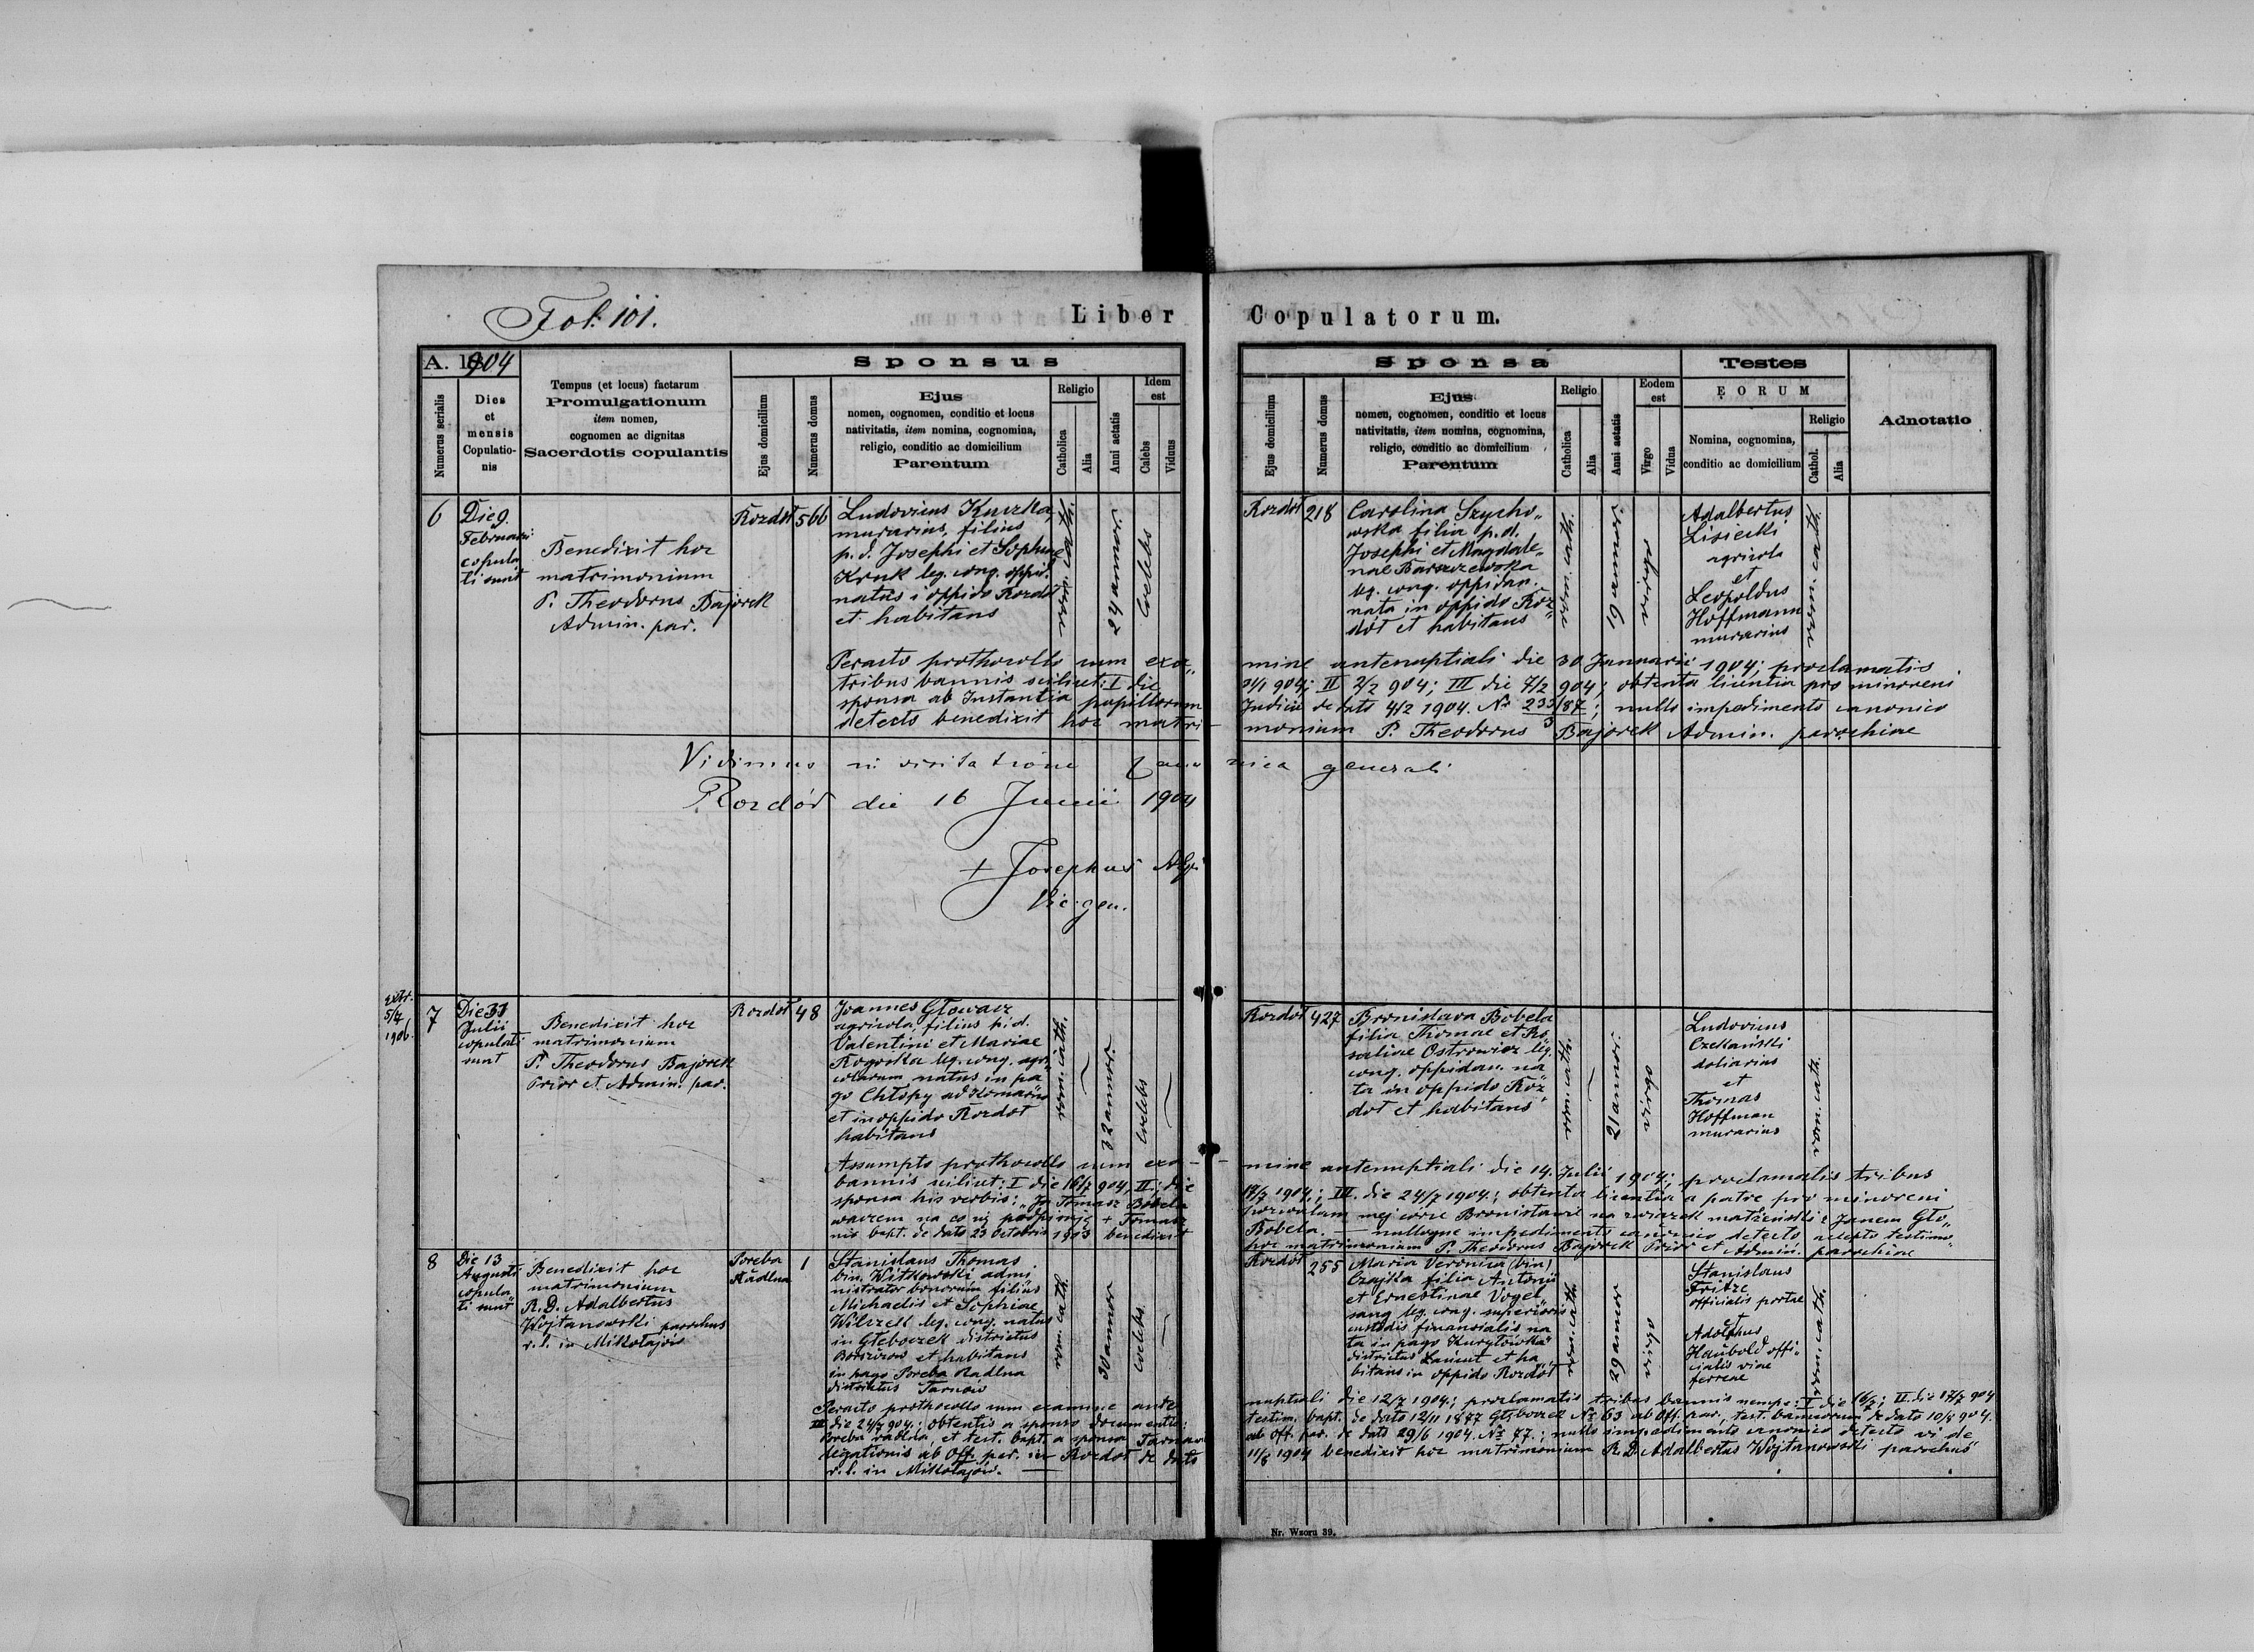 Fol. 101.
Liber Copulatorum.
A. 1904
Numerus serialis
Dies
et
mensis
Copulatio-
nis
Tempus (et locus) factarum
Promulgationum
item nomen,
cognomen ac dignitas
Sacerdotis copulantis
Sponsus
Ejus domicilium
Numerus domus
Ejus
nomen, cognomen, conditio et locus
nativitatis, item nomina, cognomina,
religio, conditio ac domicilium
Parentum
Religio
Catholica
Alia
Anni aetatis
Idem
est
Calebs
Viduus
Sponsa
Ejus domicilium
Numerus domus
Ejus
nomen, cognomen, conditio et locus
nativitatis, item nomina, cognomina,
religio, conditio ac domicilium
Parentum
Religio
Catholica
Alia
Anni aetatis
Eodem
est
Virgo
Vidua
Testes
EORUM
Nomina, cognomina,
conditio ac domicilium
Religio
Cathol.
Alia
Adnotatio
6
Die 9.
Februarii
copula
ti sunt
Benedixit hoc
matrimonium
P. Theodorus Bajorek
Admin. par.
Rozdoł
566
Ludovicus Kuczka,
murarius, filius
p. d. Josephi et Sophiae
Kruk leg. conj. oppid.
natus i oppido Rozdoł
et habitans
rom. cath.
24 annor.
Coelebs
Rozdoł
218
Carolina Szycho„
wska filia p. d.
Josephi et Magdale„
nae Barszczewska
leg. conj. oppidan.
nata in oppido Roz„
doł et habitans
rom. cath.
19 annor.
virgo
Adalbertus
Lisiecki
agricola
et
Leopoldus
Hoffmann
murarius
rom. cath.
Peracto prothocollo cum exa„mine antenuptiali die 30 Januarii 1904; proclamatis
tribus bannis scilicet: I die 31/1 904; II 2/2 904; III die 7/2 904; obtenta licentia pro minoreni
sponsa ab Instantia pupillorum Judicii de dato 4/2 1904. No 233/87/3; nullo impedimento canonico
detecto benedixit hoc matri-monium P. Theodorus Bajorek Admin. parochiae
Vidimus in visitatione Canonica generali
Rozdół die 16 Junii 1904
+ Josephus
Vic. gen.
extr.
5/7
1906.
7
Die 31
Julii
copulati
sunt
Benedixit hoc
matrimonium
P. Theodorus Bajorek
Prior et Admin. par.
Rozdoł
48
Joannes Głowacz
agricola, filius p. d.
Valentini et Mariae
Rogowska leg. conj. agri„
colarum natus in pa„
go Chłopy ad Komarno
et in oppido Rozdoł
habitans
rom. cath.
32 annor.
Coelebs
Rozdoł
427
Bronislava Bobela
filia Thomae et Ro„
saliae Ostrowicz leg.
conj. oppidan. na„
ta in oppido Roz„
doł et habitans
rom. cath.
21 annor.
virgo
Ludovicus
Czekański
doliarius
et
Thomas
Hoffman
murarius
rom. cath.
Assumpto prothocollo cum exa-mine antenuptiali die 14. Julii 1904; proclamatis tribus
bannis scilicet: I die 16/7 904, II: die 17/7 1904; III. die 24/7 1904.; obtenta licentia a patre pro minoreni
sponsa his verbis: „Ja Tomasz Bobela zezwalam mej córce Bronisławie na związek małżeński z Janem Gło„
waczem na co się podpisuję + Tomasz Bobela. — nulloque impedimento canonico detecto accepto testimo„
nio bapt. de dato 23 Octobris 1903 benedixit hoc matrimonium P. Theodorus Bajorek Prior et Admin. parochiae
8
Die 13
Augusti
copula„
ti sunt
Benedixit hoc
matrimonium
R. D. Adalbertus
Wojtanowski parochus
r. l. in Mikołajów
Poreba
Radlna
1
Stanislaus Thomas
bin. Witkowski admi
nistrator bonorum filius
Michaelis et Sophiae
Wilczek leg. conj. natus
in Głeboczek districtus
Borszczow et habitans
in pago Poreba Radlna
districtus Tarnów
rom. cath.
30 annor
Coelebs.
Rozdoł
255
Maria Veronica (bin)
Czajka filia Antonii
et Ernestinae Vogel
sang leg. conj. superioris
custodis financialis na
ta in pago Kuryłówka
districtus Łańcut et ha„
bitans in oppido Rozdoł
rom. cath.
29 annor
virgo
Stanislaus
Fritze
officialis postae
et
Adolphus
Haubold offi„
cialis viae
ferreae
rom. cath.
Peracto prothocollo cum examine ante nuptiali die 12/7 1904; proclamatis tribus bannis nempe: I die 16/7; II. die 17/7 904
III die 24/7 904.; obtentis a sponso documentis: testim. bapt. de dato 12/11 1877 Głęboczek No 63 ab Off. par., test. bannorum de dato 10/8 904.
Poreba radlna, et test. bapt. a sponsa Tarnaw ab off. par. de dato 29/6 1904. No 77.; nullo impedimento canonico detecto vi de
legationis ab Off. par. in Rozdoł de dato 11/8 1904 benedixit hoc matrimonium R. D. Adalbertus Wojtanowski parochus
r. l. in Mikołajów. —
Nr. Wzoru 39.